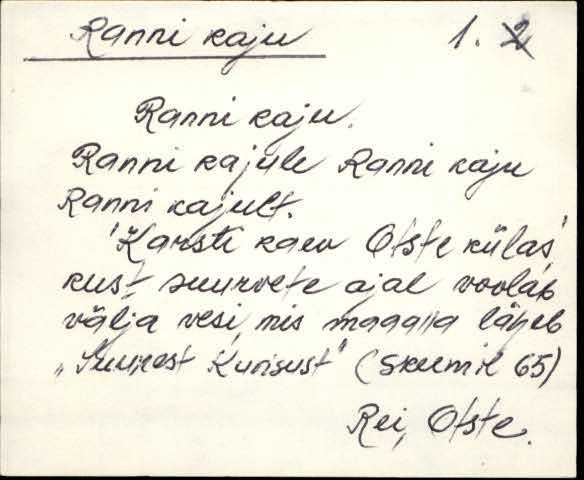 Ranni kaju 1. 2
Ranni kaju.
Ranni kajule Ranni kaju
Ranni kajult.
'Karsti kaev Otste külas'
kust suurvete ajal voolab
välja vesi, mis maa alla läheb
„Suurest Kurisust" (skeemil 65)
Rei, Otste.